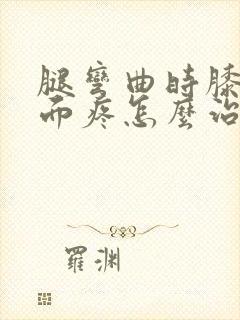 腿彎曲時膝
而疼怎麼治
羅渊